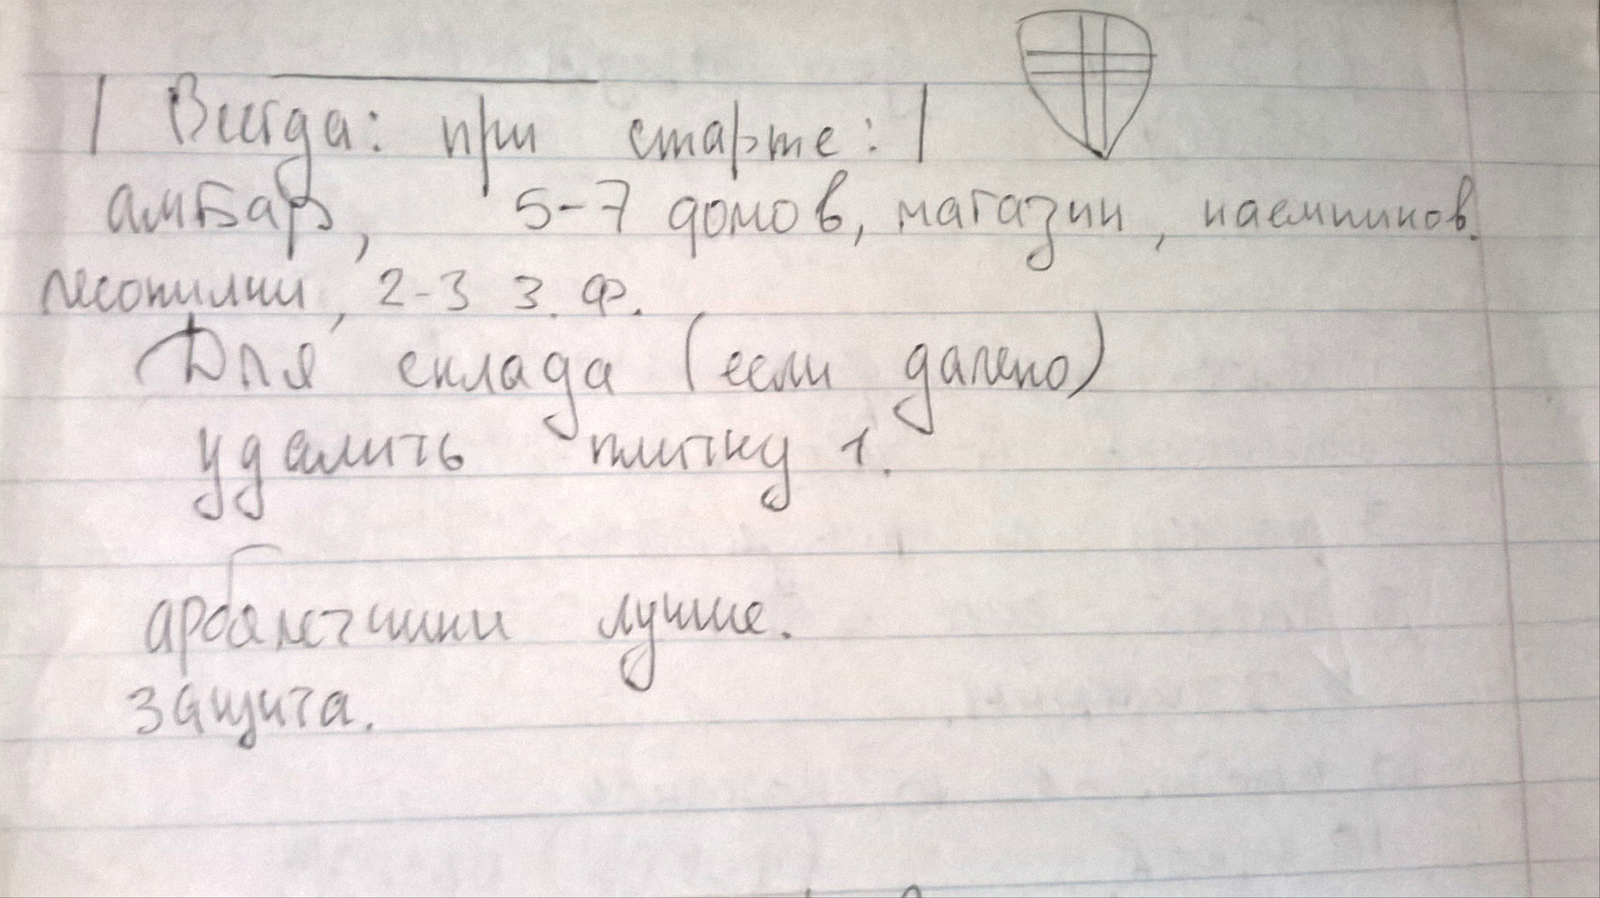 Всегда: при старте:
амбар, 5-7 домов, магазин, наемников.
лесопилки, 2-3 з. ф.
Для склада (если далеко)
удалить плитку 1.
арбалетчики лучше.
защита.